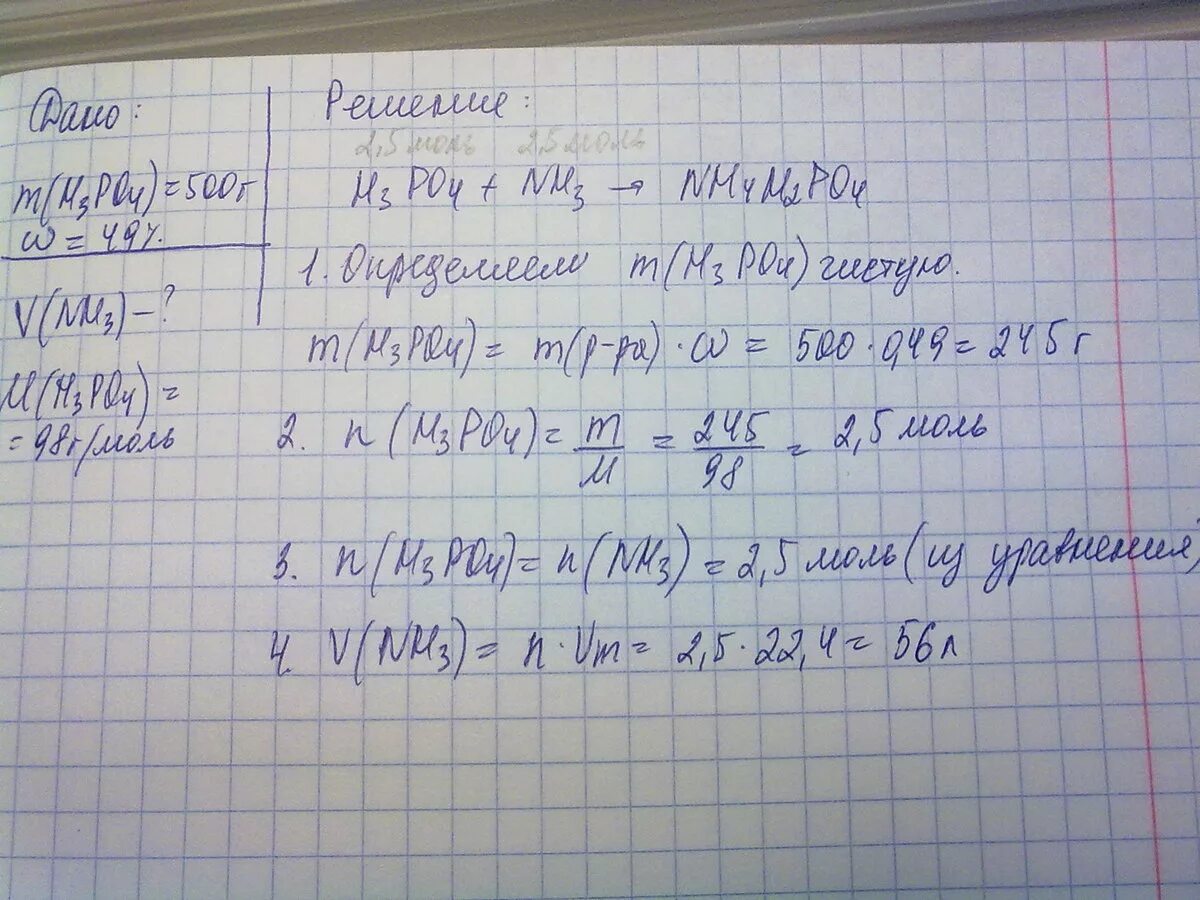 Дано:
m(H₃PO₄)=500г
ω = 49%.
V(NH₃)-?
M(H₃PO₄)=
= 98г/моль
Решение:
2,5 моль 2,5 моль
H₃PO₄ + NH₃ → NH₄H₂PO₄
1. Определяем m(H₃PO₄) чистую.
m(H₃PO₄) = m(р-ра)·ω = 500·0,49 = 245 г
2. n(H₃PO₄) = m/M = 245/98 = 2,5 моль
3. n(H₃PO₄) = n(NH₃) = 2,5 моль (из уравнения)
4. V(NH₃) = n·Vm = 2,5·22,4 = 56л